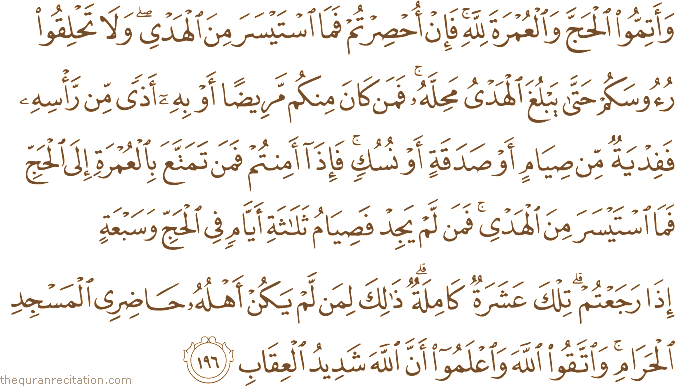 وَأَتِمُّوا۟ ٱلْحَجَّ وَٱلْعُمْرَةَ لِلَّهِ ۚ فَإِنْ أُحْصِرْتُمْ فَمَا ٱسْتَيْسَرَ مِنَ ٱلْهَدْىِ ۖ وَلَا تَحْلِقُوا۟
رُءُوسَكُمْ حَتَّىٰ يَبْلُغَ ٱلْهَدْىُ مَحِلَّهُۥ ۚ فَمَن كَانَ مِنكُم مَّرِيضًا أَوْ بِهِۦٓ أَذًى مِّن رَّأْسِهِۦ
فَفِدْيَةٌ مِّن صِيَامٍ أَوْ صَدَقَةٍ أَوْ نُسُكٍ ۚ فَإِذَآ أَمِنتُمْ فَمَن تَمَتَّعَ بِٱلْعُمْرَةِ إِلَى ٱلْحَجِّ
فَمَا ٱسْتَيْسَرَ مِنَ ٱلْهَدْىِ ۚ فَمَن لَّمْ يَجِدْ فَصِيَامُ ثَلَـٰثَةِ أَيَّامٍ فِى ٱلْحَجِّ وَسَبْعَةٍ
إِذَا رَجَعْتُمْ ۗ تِلْكَ عَشَرَةٌ كَامِلَةٌ ۗ ذَٰلِكَ لِمَن لَّمْ يَكُنْ أَهْلُهُۥ حَاضِرِى ٱلْمَسْجِدِ
ٱلْحَرَامِ ۚ وَٱتَّقُوا۟ ٱللَّهَ وَٱعْلَمُوٓا۟ أَنَّ ٱللَّهَ شَدِيدُ ٱلْعِقَابِ ١٩٦
thequranrecitation.com